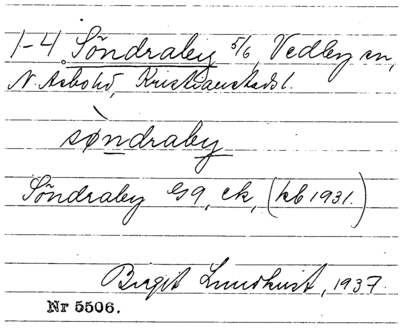 1-4 Söndraby 5/6, Vedby sn,
N. Åsbo hd, Kristianstads l.
sø̀ndraby
Söndraby G9, ek, (kb 1931.)
Birgit Lundkvist, 1937.
Nr 5506.